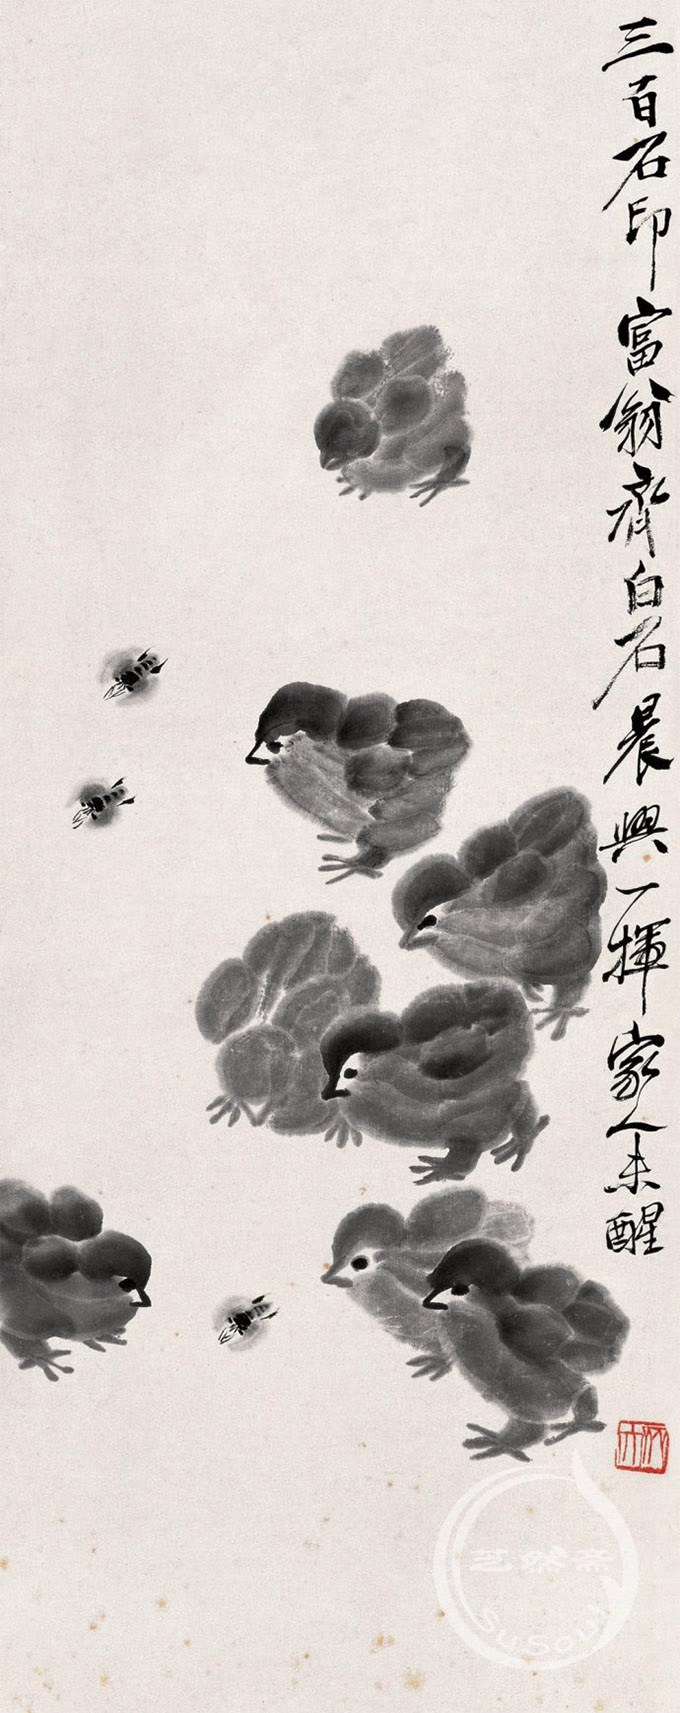 三百石印富翁齊白石晨興一揮家人未醒
艺然斋
SuSoul